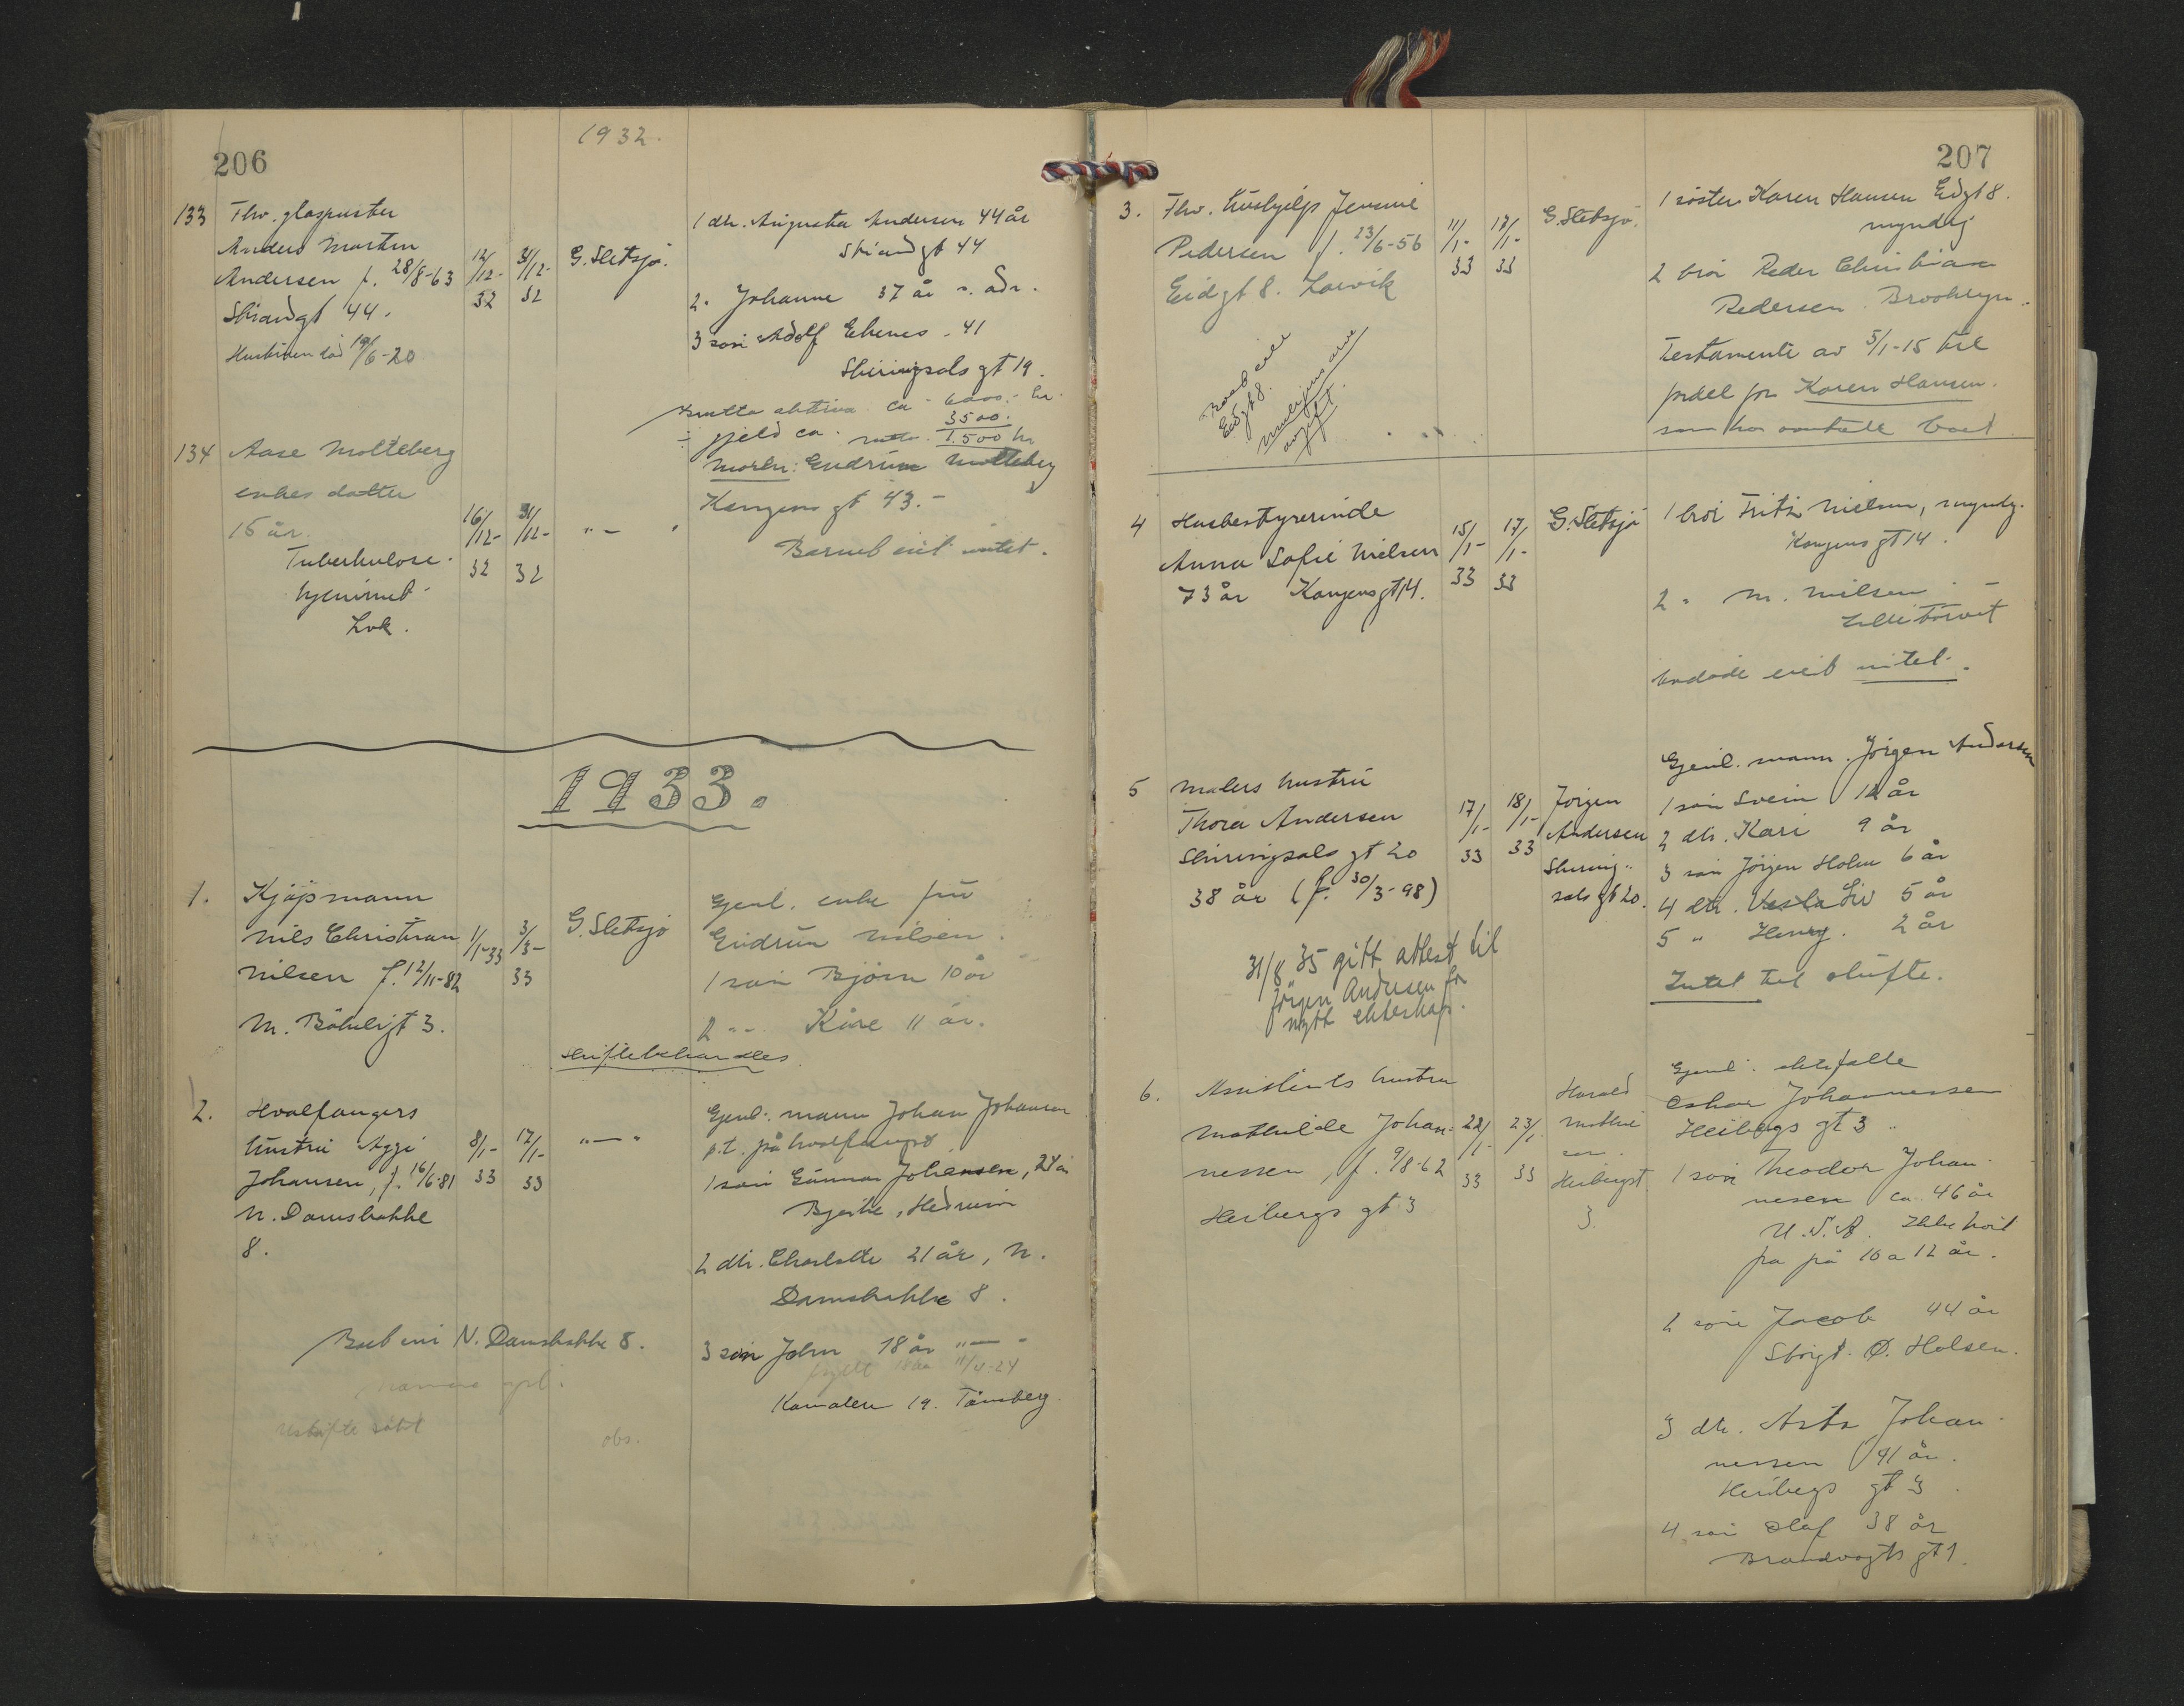 206
1932.
133
Thv. glaspuster
Anders Martin
Andersen f. 28/8-63
Strandgt 44.
Hustruen död 19/6-20
12/12-32
31/12-32
G. Sletsjö.
1 dtr. Augusta Andersen 44 år
Strandgt 44
2 " Johanne 37 år s. adr.
3 sön Adolf Ehenes - 41
Skiringsals gt 19.
Brutto aktiva ca 6000.- kr.
÷ gjeld ca. 3500.
netto 1.500 kr
134
Aase Molteberg
enkes datter
15 år.
Tuberkulose-
hjemmet
Lvk.
16/12-32
31/12-32
"—"
Moren: Gudrun Molteberg
Kongens gt 43.-
Barnet eiet intet.
1933.
1.
Kjöpmann
Nils Christian
Nilsen f. 12/11-82
M. Bökeligt 3.
1/1-33
3/3-33
G. Sletsjö
Gjenl. enke fru
Gudrun Nilsen.
1 sön Björn 10 år
2 " Kåre 11 år.
Skiftebehandles
2.
Hvalfangers
hustru Aggi
Johansen, f. 16/6-81
N. Damsbakke
8.
8/1-33
17/1-33
"—"
Gjenl. mann Johan Johansen
p.t. på hvalfangst
1 sön Gunnar Johansen, 24 år
Bjerke, Hedrum
2 dtr. Charlotte 21 år, N.
Damsbakke 8.
3 sön John 18 år "—"
11/4-24
Kamalen 19. Tönsberg
Boet eier N. Damsbakke 8.
Uskifte
obs.
207
3.
Thv. hushjelp Jensine
Pedersen f. 23/6-56
Eidgt 8. Larvik
11/1-33
17/1-33
G. Sletsjö.
1 söster Karen Hansen Eidgt 8.
myndig
2 bror Peder Christian
Pedersen Brooklyn.
Testamente av 5/1-15 til
fordel for Karen Hansen.
som har overtatt boet
Boet eier
Eidgt 8.
avgift.
4
Husbestyrerinde
Anna Sofie Nielsen
73 år Kongensgt 14.
15/1-33
17/1-33
G. Sletsjö
1 bror Fritz Nielsen, myndg.
Kongensgt 14.
2 " M. Nilsen —
Lilletorvet
Avdöde eiet intet.
5
Malers hustru
Thora Andersen
Skiringsals gt 20
38 år (f. 30/3-98)
17/1-33
18/1-33
Jörgen
Andersen
Skiring-
sals gt 20.
Gjenl. mann. Jörgen Andersen
1 sön Svein 12 år
2 dtr. Kari 9 år
3 sön Jörgen Holm 6 år
4 dtr. Vesla Liv 5 år
5 " Henny. 2 år
Intet til skifte.
31/8 35 gitt attest til
Jörgen Andersen for
nytt ekteskap.
6.
Assistents hustru
Mathilde Johan-
nessen, f. 9/8-62
Heibergs gt 3
22/1-33
23/1-33
Harald
Heibergst
3.
Gjenl. ektefelle
Oskar Johannessen
Heibergs gt 3
1 sön Theodor Johan-
nesen ca 46 år
U.S.A. Ikke hört
fra på 10 a 12 år.
2 sön Jacob 44 år
Storgt. Ø. Halsen.
3 dtr. Asta Johan-
nessen 41 år.
Heibergs gt 3
4 sön Olaf 38 år
Brandvagts gt 1.